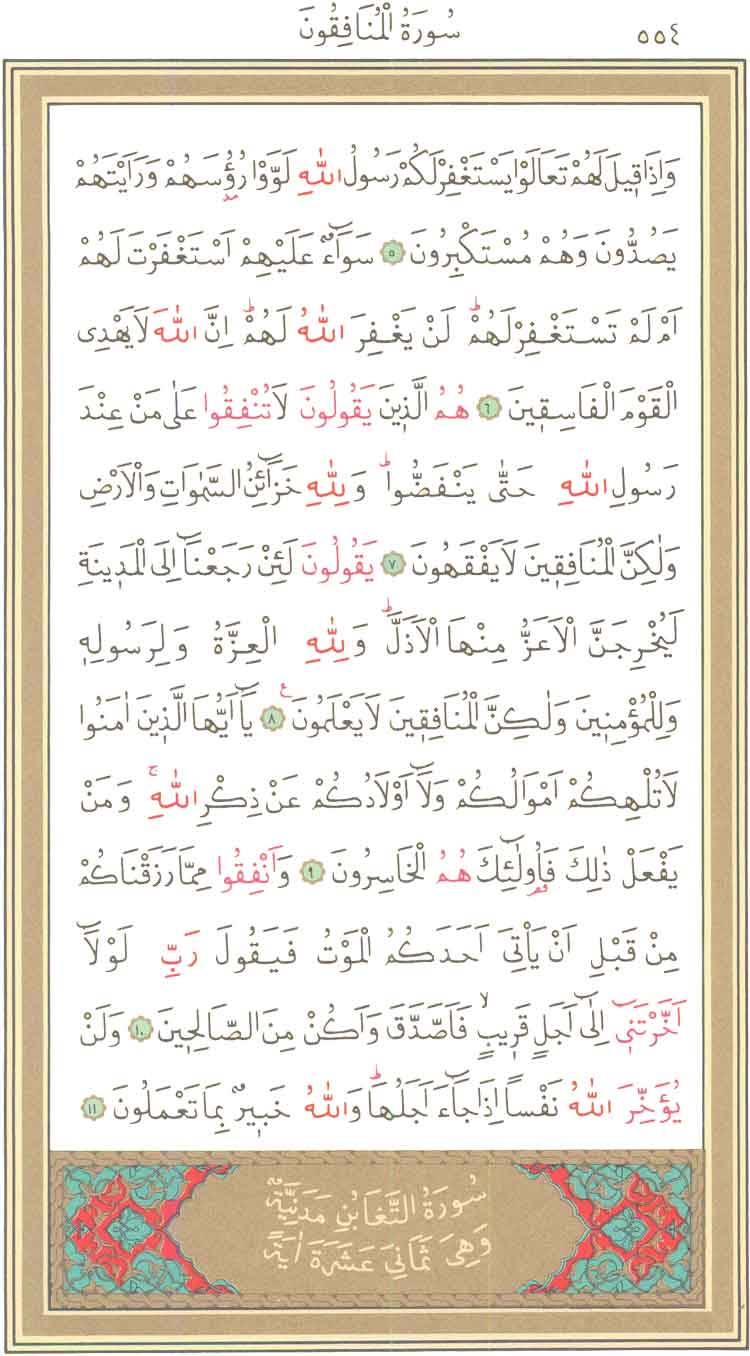 سُورَةُ الْمُنَافِقُونَ ٥٥٤
وَاِذَا قٖيلَ لَهُمْ تَعَالَوْا يَسْتَغْفِرْ لَكُمْ رَسُولُ اللّٰهِ لَوَّوْا رُؤُ۫سَهُمْ وَرَاَيْتَهُمْ
يَصُدُّونَ وَهُمْ مُسْتَكْبِرُونَ ٥ سَوَٓاءٌ عَلَيْهِمْ اَسْتَغْفَرْتَ لَهُمْ
اَمْ لَمْ تَسْتَغْفِرْ لَهُمْۜ لَنْ يَغْفِرَ اللّٰهُ لَهُمْۜ اِنَّ اللّٰهَ لَا يَهْدِى
الْقَوْمَ الْفَاسِقٖينَ ٦ هُمُ الَّذٖينَ يَقُولُونَ لَا تُنْفِقُوا عَلٰى مَنْ عِنْدَ
رَسُولِ اللّٰهِ حَتّٰى يَنْفَضُّواۜ وَلِلّٰهِ خَزَٓائِنُ السَّمٰوَاتِ وَالْاَرْضِ
وَلٰكِنَّ الْمُنَافِقٖينَ لَا يَفْقَهُونَ ٧ يَقُولُونَ لَئِنْ رَجَعْنَٓا اِلَى الْمَدٖينَةِ
لَيُخْرِجَنَّ الْاَعَزُّ مِنْهَا الْاَذَلَّۜ وَلِلّٰهِ الْعِزَّةُ وَلِرَسُولِهٖ
وَلِلْمُؤْمِنٖينَ وَلٰكِنَّ الْمُنَافِقٖينَ لَا يَعْلَمُونَ ع ٨ يَٓا اَيُّهَا الَّذٖينَ اٰمَنُوا
لَا تُلْهِكُمْ اَمْوَالُكُمْ وَلَٓا اَوْلَادُكُمْ عَنْ ذِكْرِ اللّٰهِۚ وَمَنْ
يَفْعَلْ ذٰلِكَ فَاُو۬لٰٓئِكَ هُمُ الْخَاسِرُونَ ٩ وَاَنْفِقُوا مِمَّا رَزَقْنَاكُمْ
مِنْ قَبْلِ اَنْ يَاْتِىَ اَحَدَكُمُ الْمَوْتُ فَيَقُولَ رَبِّ لَوْلَٓا
اَخَّرْتَنٖٓى اِلٰٓى اَجَلٍ قَرٖيبٍۙ فَاَصَّدَّقَ وَاَكُنْ مِنَ الصَّالِحٖينَ ١٠ وَلَنْ
يُؤَخِّرَ اللّٰهُ نَفْساً اِذَا جَٓاءَ اَجَلُهَاۜ وَاللّٰهُ خَبٖيرٌ بِمَا تَعْمَلُونَ ١١
سُورَةُ التَّغَابُنِ مَدَنِيَّةٌ
وَهِىَ ثَمَانِىَ عَشْرَةَ اٰيَةً